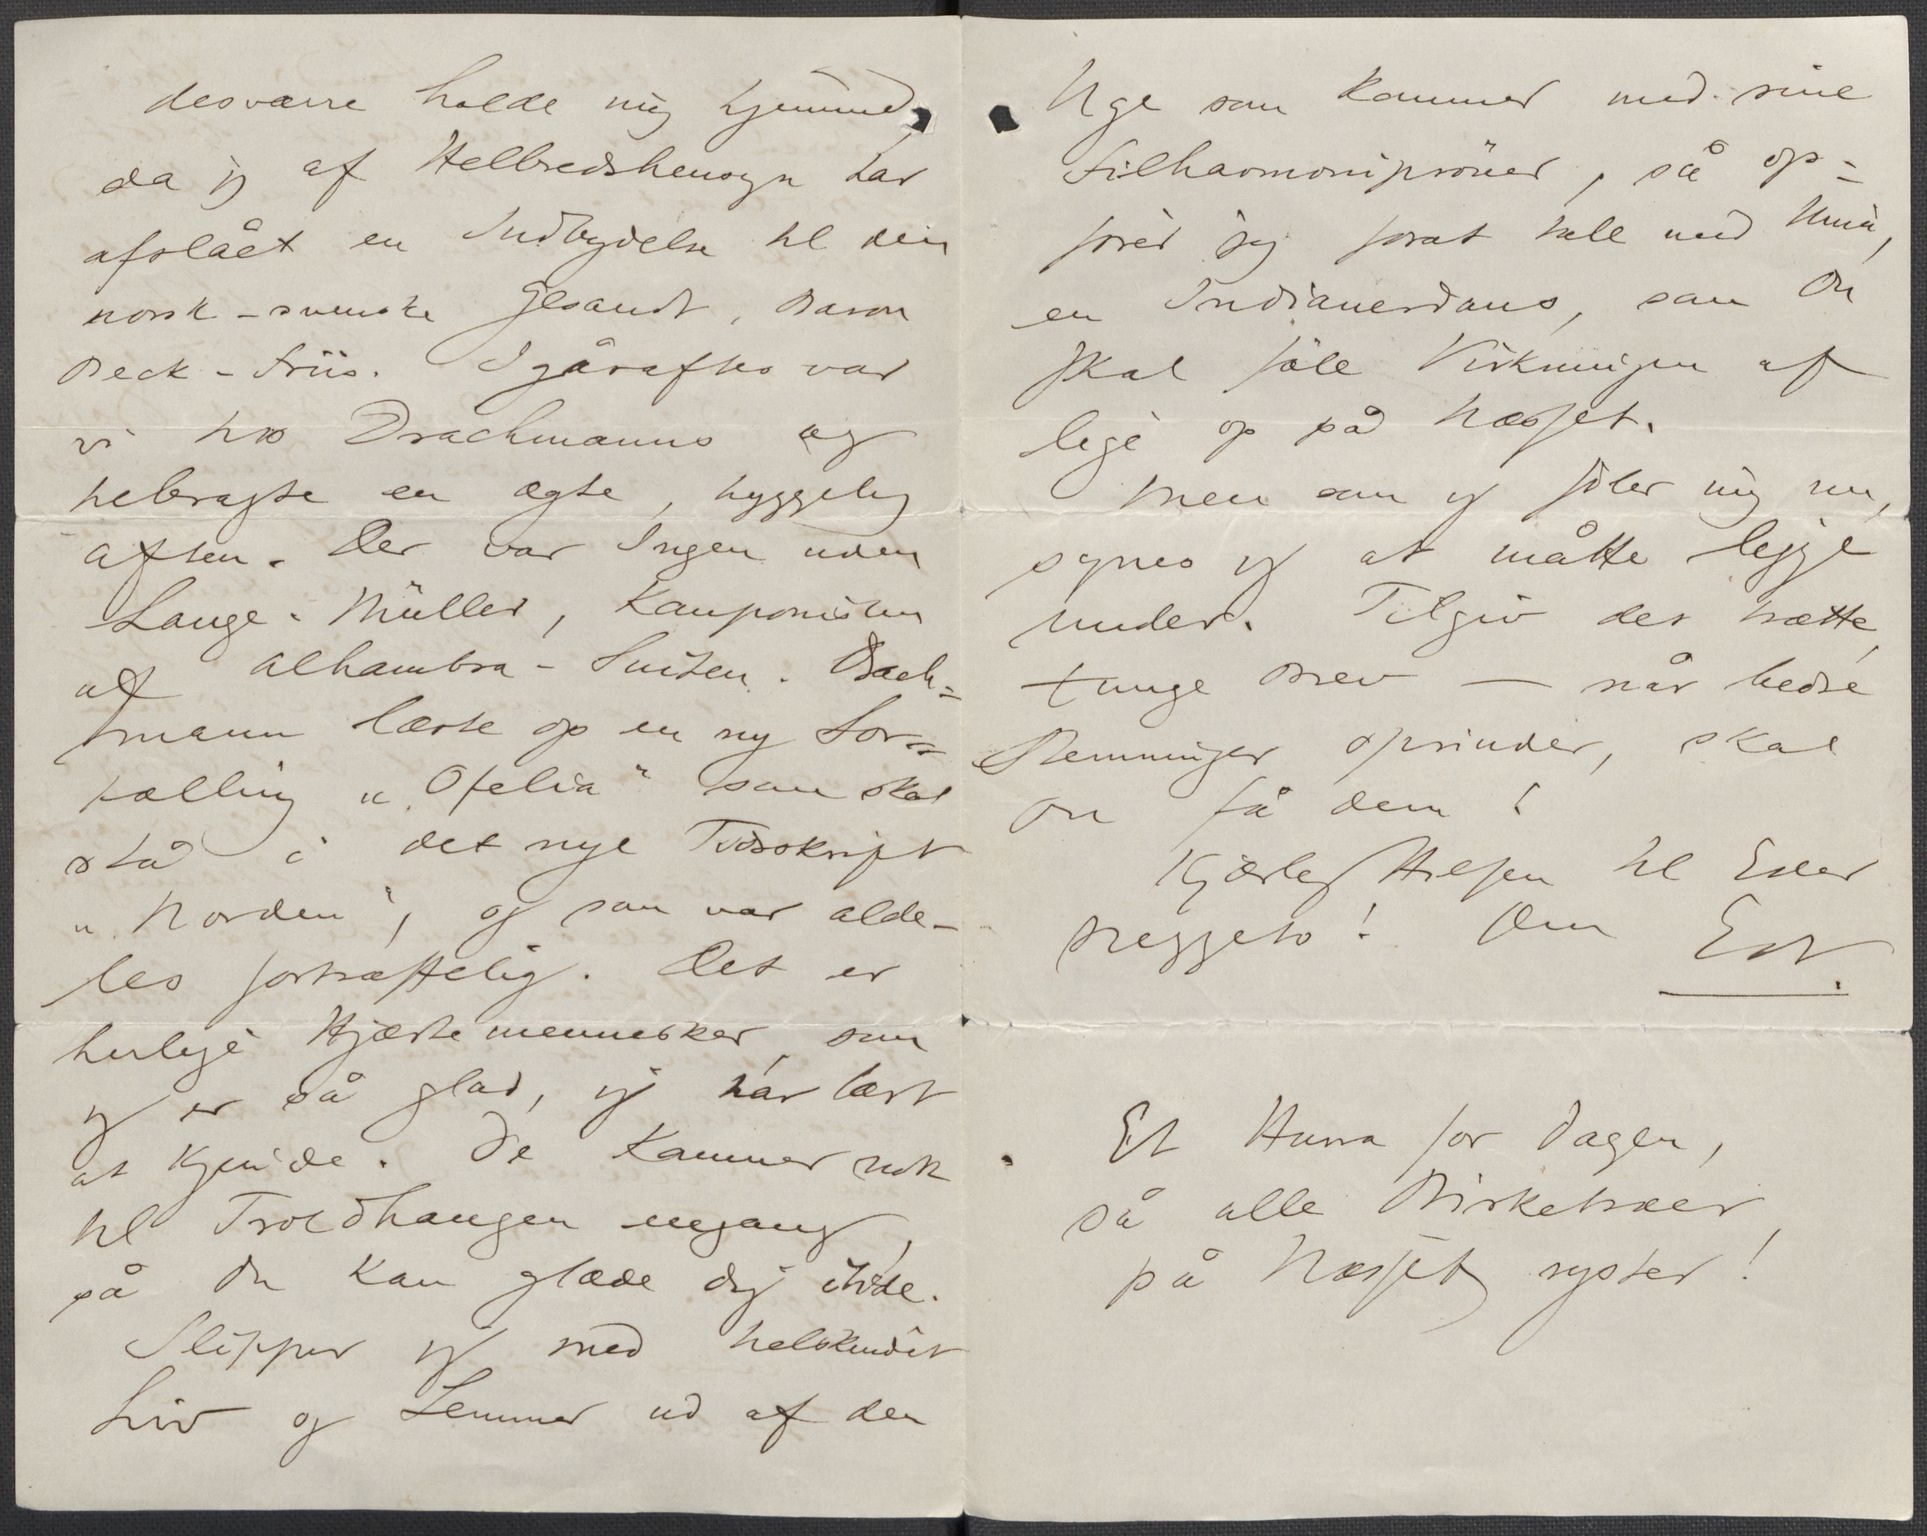 desværre holde mig hjemme,
da jeg af Helbredshensyn har
afslået en Indbydelse til den
norsk-svenske Gesandt, Baron
Beck-Friis. Igåraftes var
vi hos Drachmanns og
tilbragte en ægte, hyggelig
Aften. Der var Ingen uden
Lange-Müller, Komponisten
af Alhambra-Suiten. Drach=
mann læste op en ny For=
tælling „Ofelia" som skal
stå i det nye Tidsskrift
„Norden", og som var alde-
les fortræffelig. Det er
herlige Hjærtemennesker, som
jeg er så glad, jeg har lært
at kjende. De kommer nok
til Troldhaugen engang,
så Du kan glæde dig itide.
Slipper jeg med helskindet
Liv og Lemmer ud af den
Uge som kommer med sine
Filharmoniprøver, så op=
fører jeg forat tale med
en Indianerdans, som Du
skal føle Virkningen af
lige op på Næsset.
Men som jeg føler mig nu,
synes jeg at måtte ligge
under. Tilgiv det trætte,
tunge Brev — når bedre
Stemninger oprinder, skal
Du få dem!
Kjærlig Hilsen til Eder
Beggeto! Din Edv.
Et Hurra for Dagen,
så alle Birketræer
på Næsset ryster!